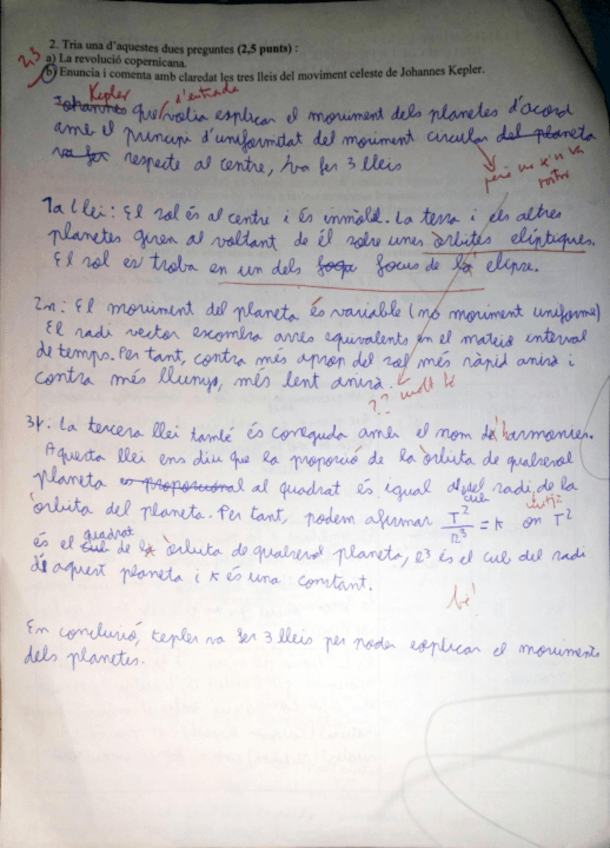 2. Tria una d'aquestes dues preguntes (2,5 punts) :
2,3
a) La revolució copernicana.
b) Enuncia i comenta amb claredat les tres lleis del moviment celeste de Johannes Kepler.
Kepler d'entrada
Johannes que volia explicar el moviment dels planetes d'acord
amb el principi d'uniformitat del moviment circular del planeta
va fer respecte al centre, hva fer 3 lleis
però no se'n va
1a Llei: El sol és al centre i és immòbil. La terra i els altres
planetes giren al voltant de él sobre unes òrbites elíptiques.
El sol es troba en un dels foga focus de la elipse.
2n: El moviment del planeta és variable (no moviment uniforme)
El radi vector escombra arees equivalents en el mateix interval
de temps. Per tant, contra més aprop del sol més ràpid anirà i
contra més lluny, més lent anirà.
?? molt bé
3r: La tercera llei també és coneguda amb el nom de harmonies.
Aquesta llei ens diu que la proporció de la òrbita de qualsevol
planeta es proporcional al quadrat és igual al cub del radi de la
mitjà
òrbita del planeta. Per tant, podem afirmar T²/R³ = K on T²
quadrat
és el cub de la òrbita de qualsevol planeta, R³ és el cub del radi
de aquest planeta i K és una constant.
bé!
En conclusió, Kepler va fer 3 lleis per poder explicar el moviments
dels planetes.